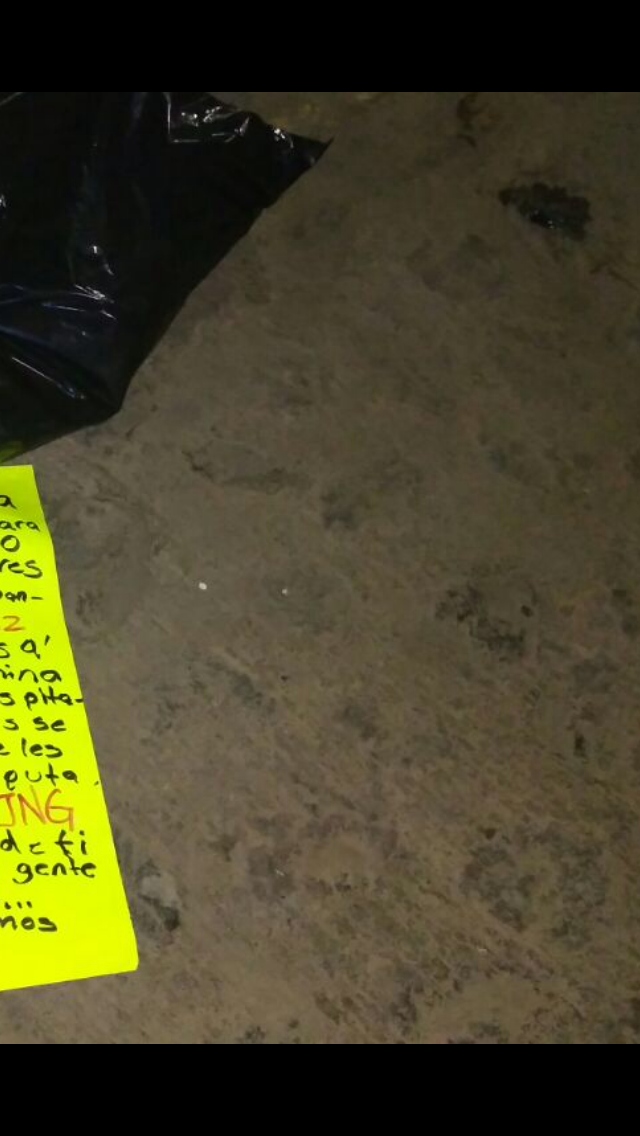 a
ara
O
res
an-
z
s q'
ina
s pita-
s se
e les
puta
JNG
gente
...
mos